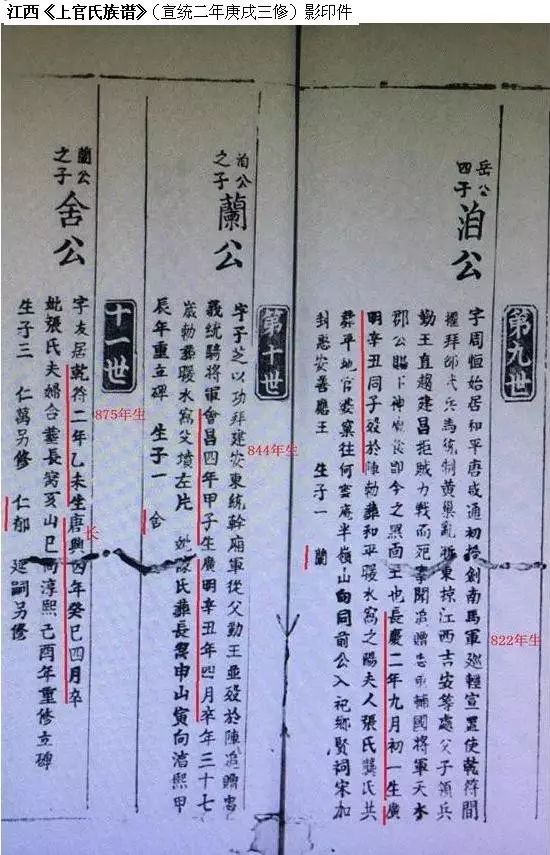 江西《上官氏族谱》（宣统二年庚戌三修）影印件
第九世
岳公
四子
洎公
字周恒始居和平唐咸通初拾劍南馬軍巡轄宣置使乾符間
擢拜邵武兵馬統制黄巢亂浙東掠江西吉安等處父子領兵
勤王直趨建昌拒賊力戰而死事聞追贈忠車輔國將軍天水
郡公賜下神廟食即今之黑面王也長慶二年九月初一生廣
明辛丑同子殁於陣勅葬和平暖水窩之陽夫人張氏龔氏共
葬平地官婆窠往何家庵半嶺山向同前公入祀鄉賢祠宋加
封惠安善應王 生子一 蘭
822年生
第十世
洎公
之子
蘭公
字子芝以功拜建安東統幹廂軍從父勤王並殁於陣追贈
義統騎將軍會昌四年甲子生廣明辛丑年四月卒年三十七
歲勅葬暖水窩父墳左片 妣 氏葬長窠申山寅向淳熙甲
辰年重立碑 生子一 舍
844年生
十一世
蘭公
之子
舍公
字友居乾符二年乙未生唐興四年癸巳四月卒
妣張氏夫婦合葬長窩亥山巳向淳熙己酉年重修立碑
生子三 仁萬另修 仁郁 延嗣另修
875年生
长